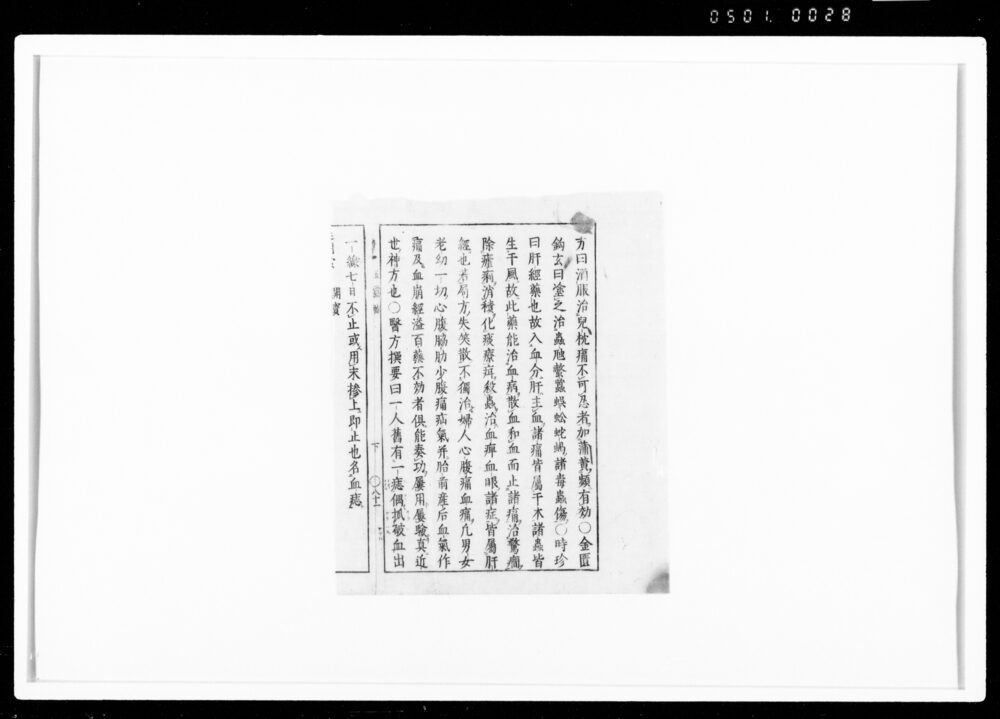 0501. 0028
方曰酒服治兒枕痛不可忍者加蒲黃類有効〇金匱
鈎玄曰塗之治蟲虺螫蠆蜈蚣蛇蝎諸毒蟲傷〇時珍
曰肝經藥也故入血分肝主血諸痛皆屬于木諸蟲皆
生于風故此藥能治血病散血和血而止諸痛治驚癎
除瘧痢消積化痰療疳殺蟲治血痹血眼諸症皆屬肝
經也若局方失笑散不獨治婦人心腹痛血痛凡男女
老幼一切心腹脇肋少腹痛疝氣并胎前産后血氣作
痛及血崩經溢百藥不効者俱能奏功屢用屢驗真近
世神方也〇醫方撰要曰一人舊有一痣偶抓破血出
下 〇八十一
一線七日不止或用末摻上即止也名血痣
開寶